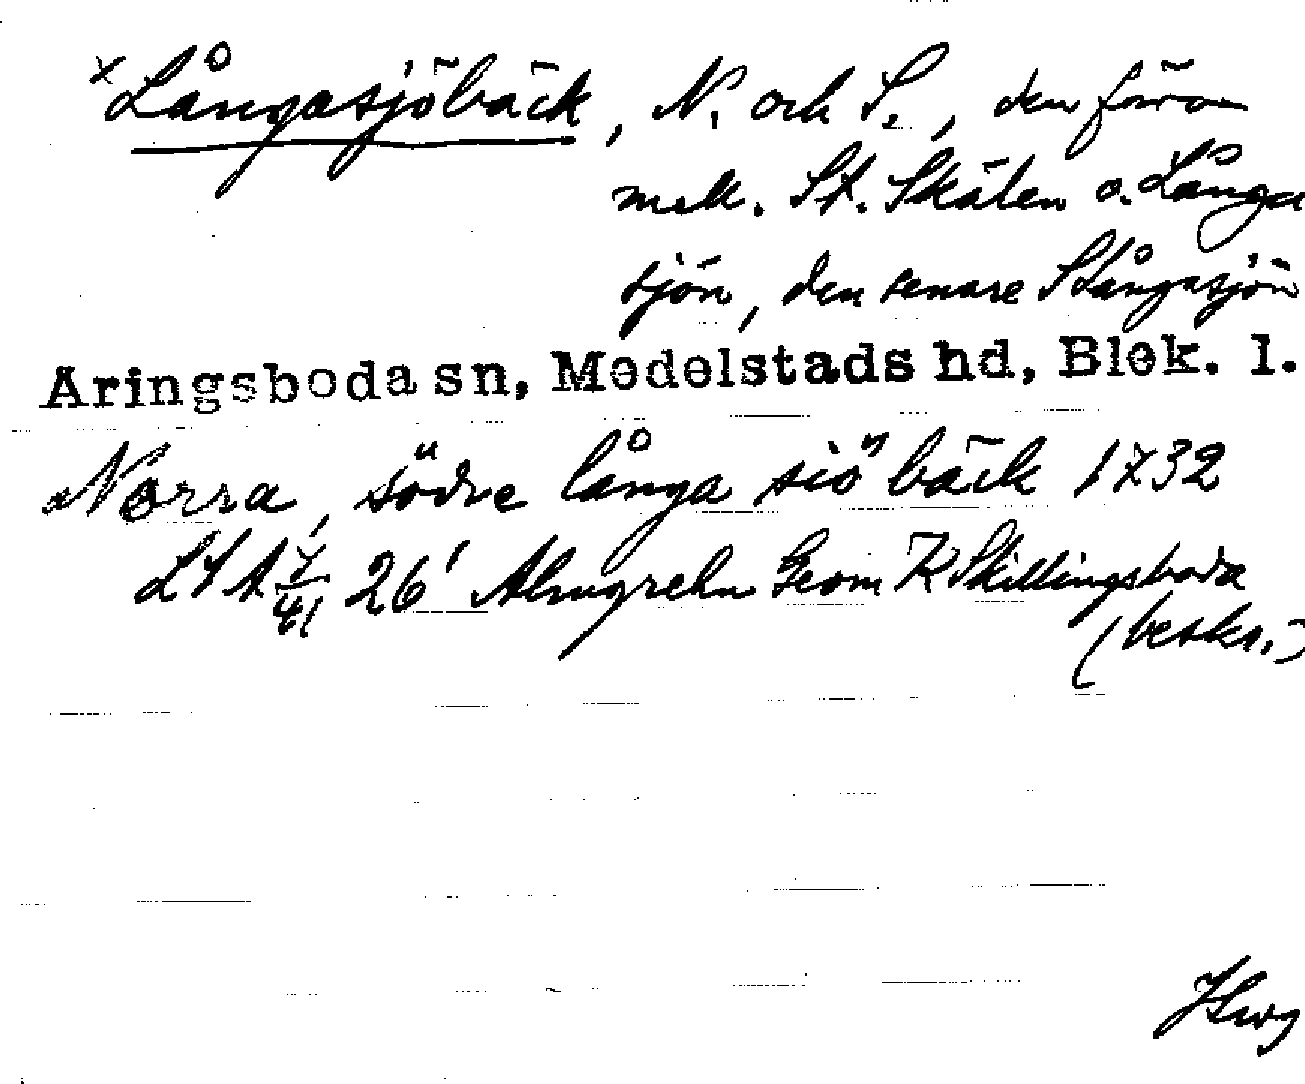 x Långasjöbäck, N. och S., den förra
mek. St. Skälen o. Långa
sjön, den senare Långasjön
Åringsboda sn, Medelstads hd, Blek. l.
Norra, södre långa siö bäck 1732
LSA 26' Almgrehn Geom K Skillingsboda
(beskr.)